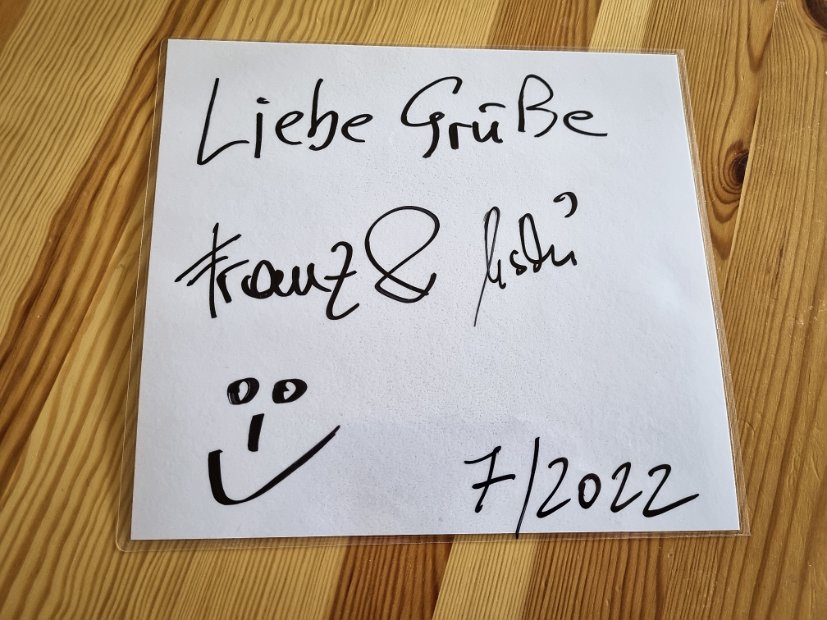 Liebe Grüße
Franz &
7/2022